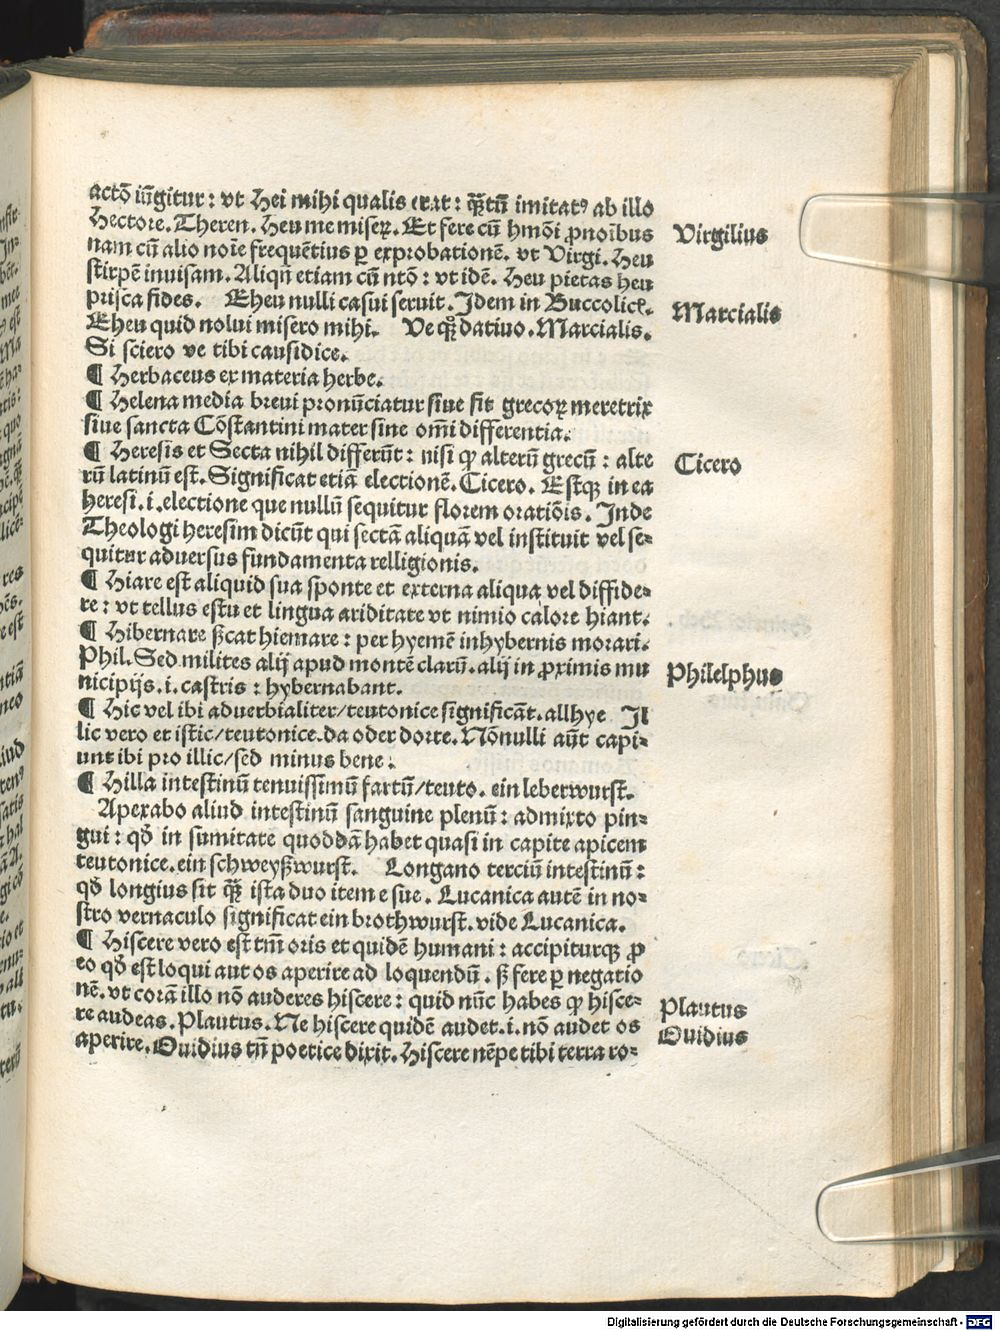 actō iūgitur: vt Hei mihi qualis erat: q̃tū imitatꝰ ab illo
Hectore. Theren. Heu me miseꝝ. Et fere cū hmōi ꝓnoībus
nam cū alio noīe frequētius ꝑ exprobationē. vt Virgi. Heu
stirpē inuisam. Aliqñ etiam cū ntō: vt idē. Heu pietas heu
prisca fides. Eheu nulli casui seruit. Idem in Buccolicꝭ.
Eheu quid nolui misero mihi. Ve qꝫ datiuo. Marcialis.
Si sciero ve tibi causidice.
¶ Herbaceus ex materia herbe.
¶ Helena media breui pronūciatur siue sit grecoꝝ meretrix
siue sancta Cōstantini mater sine om̄i differentia.
¶ Heresis et Secta nihil differūt: nisi ꝙ alterū grecū: alte
rū latinū est. Significat etiā electionē. Cicero. Estqꝫ in ea
heresi .i. electione que nullū sequitur florem oratiōis. Inde
Theologi heresim dicūt qui sectā aliquā vel instituit vel se⸗
quitur aduersus fundamenta relligionis.
¶ Hiare est aliquid sua sponte et externa aliqua vel diffide⸗
re: vt tellus estu et lingua ariditate vt nimio calore hiant.
¶ Hibernare ſ̄cat hiemare: per hyemē inhybernis morari.
Phil. Sed milites alij apud montē clarū. alij in ꝓximis mu
nicipijs .i. castris: hybernabant.
¶ Hic vel ibi aduerbialiter/teutonice significāt. allhye Il
lic vero et istic/teutonice. da oder dorte. Nōnulli aūt capi⸗
unt ibi pro illic/sed minus bene.
¶ Hilla intestinū tenuissimū fartū/teuto. ein leberwurst.
Apexabo aliud intestinū sanguine plenū: admixto pin⸗
gui: qđ in sumitate quoddā habet quasi in capite apicem
teutonice. ein schweyßwurst. Longano terciū intestinū:
qđ longius sit q̃ꝫ ista duo item e sue. Lucanica autē in no⸗
stro vernaculo significat ein brothwurst. vide Lucanica.
¶ Hiscere vero est tm̄ oris et quidē humani: accipiturqꝫ ꝓ
eo qđ est loqui aut os aperire ad loquendū. ſꝫ fere ꝑ negatio
nē. vt corā illo nō auderes hiscere: quid nūc habes ꝙ hisce⸗
re audeas. Plautus. Ne hiscere quidē audet .i. nō audet os
aperire. Ouidius tn̄ poetice dixit. Hiscere nēpe tibi terra ro⸗
Virgilius
Marcialis
Cicero
Philelphus
Plautus
Ouidius
Digitalisierung gefördert durch die Deutsche Forschungsgemeinschaft - DFG